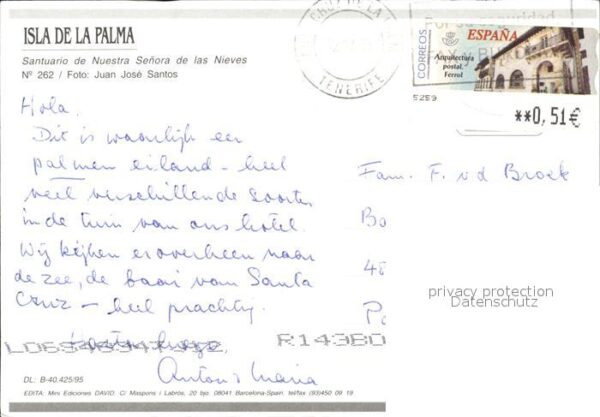 ISLA DE LA PALMA
Santuario de Nuestra Señora de las Nieves
Nº 262 / Foto: Juan José Santos
TENERIFE
CORREOS
ESPAÑA
Arquitectura
postal.
Ferrol
5259
**0,51€
Hola.
Dit is waarlijk een
palmen eiland - heel
veel verschillende soorten
in de tuin van ons hotel.
Wij kijken eroverheen naar
de zee, de baai van Santa
Cruz - heel prachtig.
Anton & Maria
Fam. F. v d Broek
Bo
48
Po
privacy protection
Datenschutz
R143BD
DL: B-40.425/95
EDITA: Mini Ediciones DAVID. C/ Maspons i Labrós, 20 bjo. 08041 Barcelona-Spain. Tel/fax (93)450 09 19